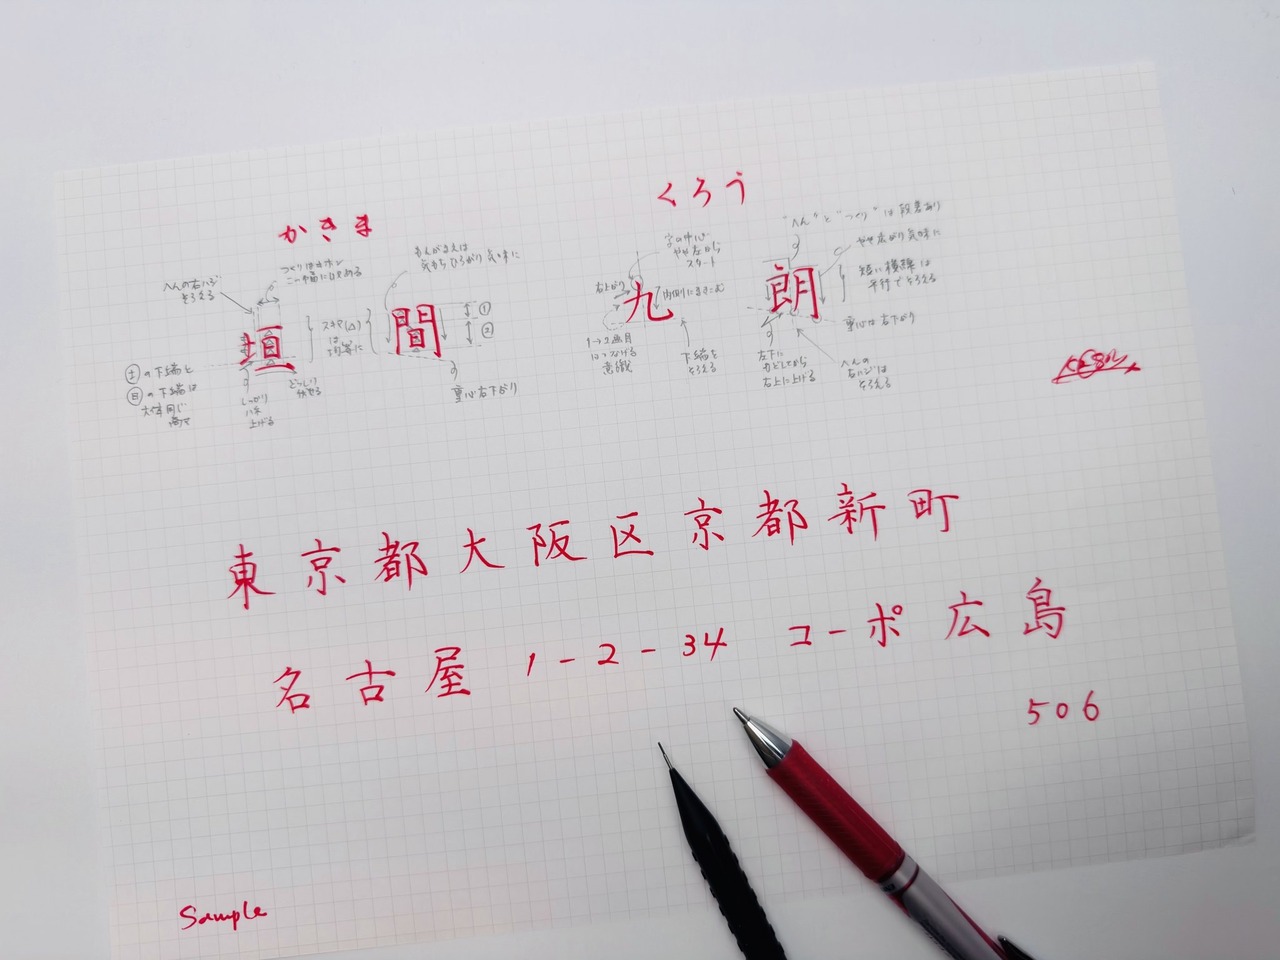 かきま
へんの右ハジ
そろえる
つくりはタホン
もんがまえは
気もちひろがり気味に
垣間
①
②
スキマ(△)
は
均等に
土の下端と
目の下端は
大体同じ
高さ
しっかり
ハネ
上げる
どっしり
伏せる
重心右下がり
くろう
字の中心
やや左から
スタート
右上がり
内側にまきこむ
九朗
1→2画目
につなげる
意識
下端を
そろえる
"へん"と"つくり"は段差あり
やや広がり気味に
短い横線は
平行でそろえる
重心は右下がり
左下に
力としてから
右上に上げる
へんの
右ハジは
そろえる
東京都大阪区京都新町
名古屋 1-2-34 コーポ広島
506
Sample